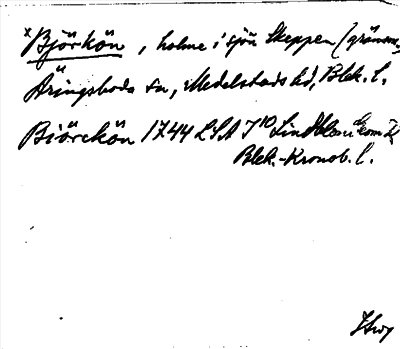 x Björkön, holme i sjön Skeppen (gränsar)
Äringsboda sn, Medelstads hd, Blek. l.
Biörckön 1744 LSA J10 Lindblom
Blek.-Kronob. l.